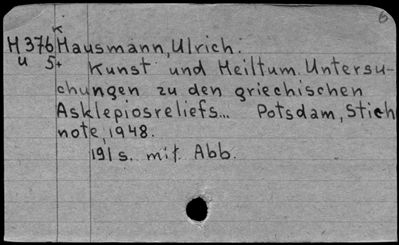 6
K
H 376 Hausmann, Ulrich:
u 5+ Kunst und Heiltum. Untersu-
chungen zu den griechischen
Asklepiosreliefs... Potsdam, Stich
note, 1948.
191 s. mit Abb.